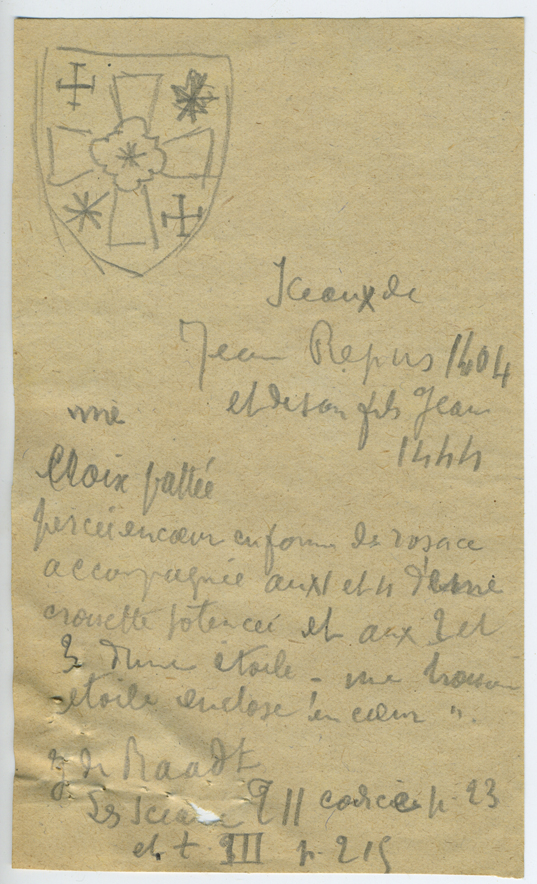 Sceaux de
Jean Repus 1404
et de son fils Jean
1444
une
Croix pattée
percée en cœur en forme de rosace
accompagnée aux 1 et 4 d'une
croisette potencée et aux 2 et
3 d'une étoile - une
étoile enclose en cœur ".
J. de Raadt
Les Sceaux T II p. 23
et t III p. 215